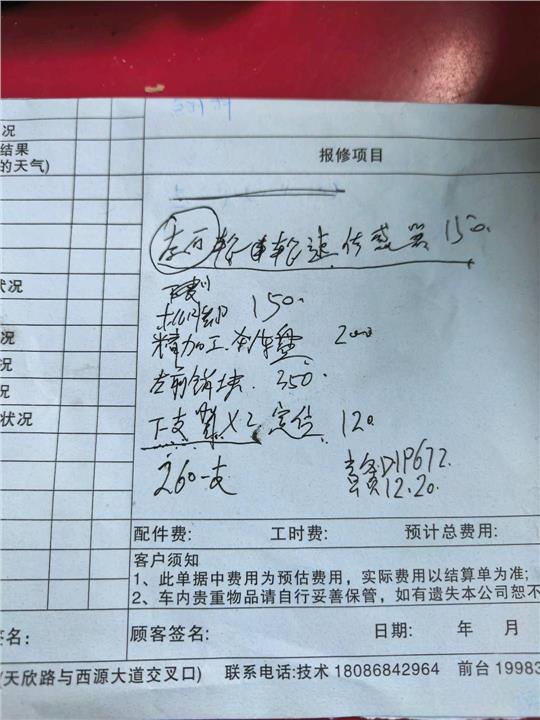 况
结果
的天气)
报修项目
左后轮 轮速传感器 150.
150.
精加工刹车盘 200
左前 块. 350.
下支臂X2 定位 120
260一支
D1P672.
12.20.
状况
状况
况
况
状况
配件费: 工时费: 预计总费用:
客户须知
1、此单据中费用为预估费用，实际费用以结算单为准;
2、车内贵重物品请自行妥善保管，如有遗失本公司恕不
签名: 顾客签名: 日期: 年 月
(天欣路与西源大道交叉口) 联系电话:技术 18086842964 前台 19983